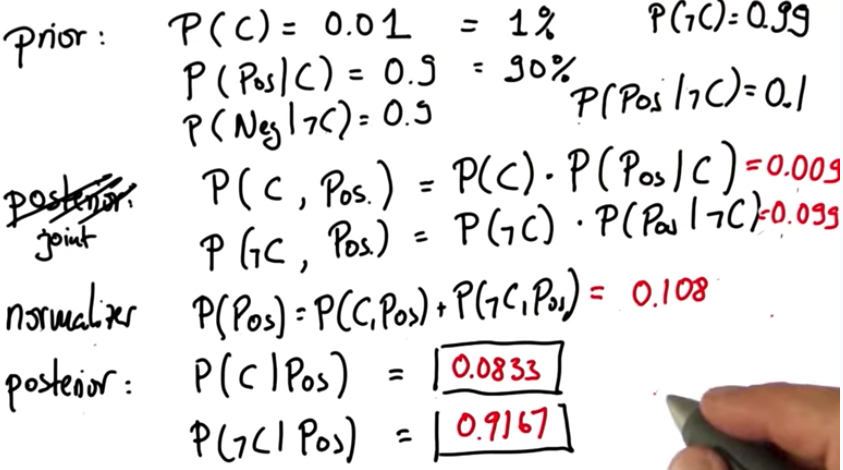 prior : P(C) = 0.01 = 1% P(¬C)=0.99
P(Pos|C) = 0.9 = 90% P(Pos|¬C)=0.1
P(Neg|¬C)=0.9
posterior: P(C, Pos.) = P(C) · P(Pos|C) =0.009
joint P(¬C, Pos.) = P(¬C) · P(Pos|¬C)=0.099
normalizer P(Pos)=P(C,Pos)+P(¬C,Pos) = 0.108
posterior : P(C|Pos) = 0.0833
P(¬C|Pos) = 0.9167